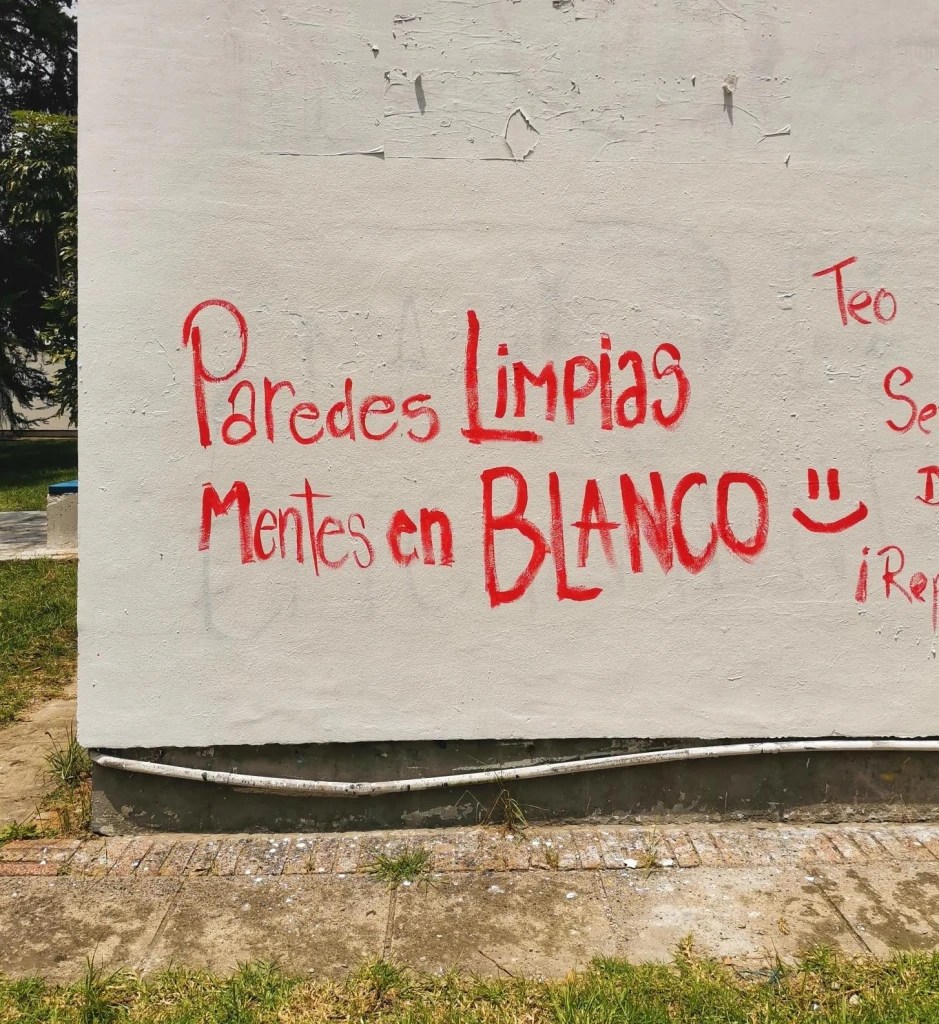 Paredes Limpias
Mentes en BLANCO
Teo